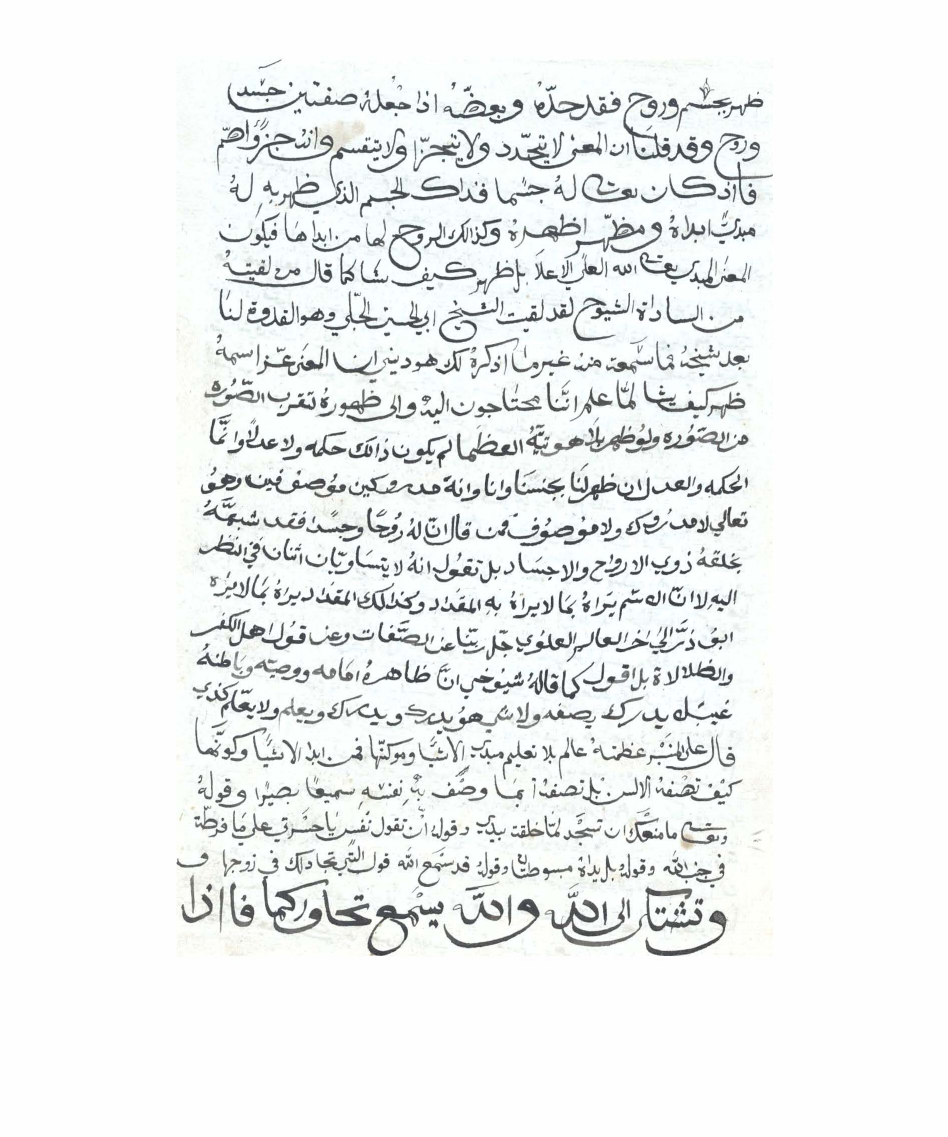 ظهر بجسم وروح فقد حدّه وبعضّه اذا جعلهُ صفتين جسد
وروح وقد قلنا ان المعنى لا يتحدد ولا يتجزّا ولا يتقسم وانت جزؤا صم
فا اذ كان له جسما فذاك الجسم الذي ظهر به لهُ
مبديّا ابداهُ ومظهّر اظهرهُ وكذالك الروح لها من ابداها فيكون
المعنى المبدي الله العلي الاعلا بل ظهر كيف يشا كما قال من لقيتهُ
من الساداة الشيوح لقد لقيت الشيخ ابي الحسين الجلي وهو القدوة لنا
بعد شيخهُ فما سمعة منهُ غير ما اذكرهُ لك هو ديني ان المعنى عزّ اسمهُ
ظهر كيف يشا لمّا علم انّنا محتاجون اليهْ والى ظهورهُ تقرب الصّورة
من الصّوره ولو ظهر بلاهويّتهُ العظما لم يكون ذالك حكمه ولا عدلا وانّما
الحكمه والعدل ان ظهر لنا بجنسنا وانا وانهُ مدروكين موصوفين وهو
تعالي لا مدروك ولا موصوف فمن قال انّ لهُ رُوحًا وجسد فقد شبههُ
بخلقهُ ذوي الارواح والاجساد بل تقول انهُ لا يتساويان اثنان في النظر
اليه لا انّ الاسم يراهُ بما لا يراهُ به المقداد وكذالك المقداد يراهُ بما لا يراه
ابو ذرّ الى اخر العالم العلوي جل ربّنا عن الصّفات وعن قول اهل الكفر
والظلالاة بل اقول كما قالهُ شيوخي انّ ظاهرهُ امامه ووصيّه وباطنهُ
غيب لا يدرك يصفه ولا شي هو يدرك ويعلم ولا يعّلم كذي
قال على المنبر عظمتهُ عالم بلا تعليم مبدي الاشيا ومكوّنها فمن ابدا الاشيا وكوّنها
كيف تصفهُ الالسن بل تصفهُ بما وصف به نفسه سميعا بصيرا وقولهُ
ما منعك ان تسجد لما خلقة بيدي وقوله ان تقول نفس يا حسرتي على ما فرطّة
في جنب الله وقوله بل يداهُ مبسوطتان وقولهُ قد سمع الله قول التي تجادلك في زوجها
وتشتكي الى اللّه واللّه يسْمع تحاوركما فا اذا